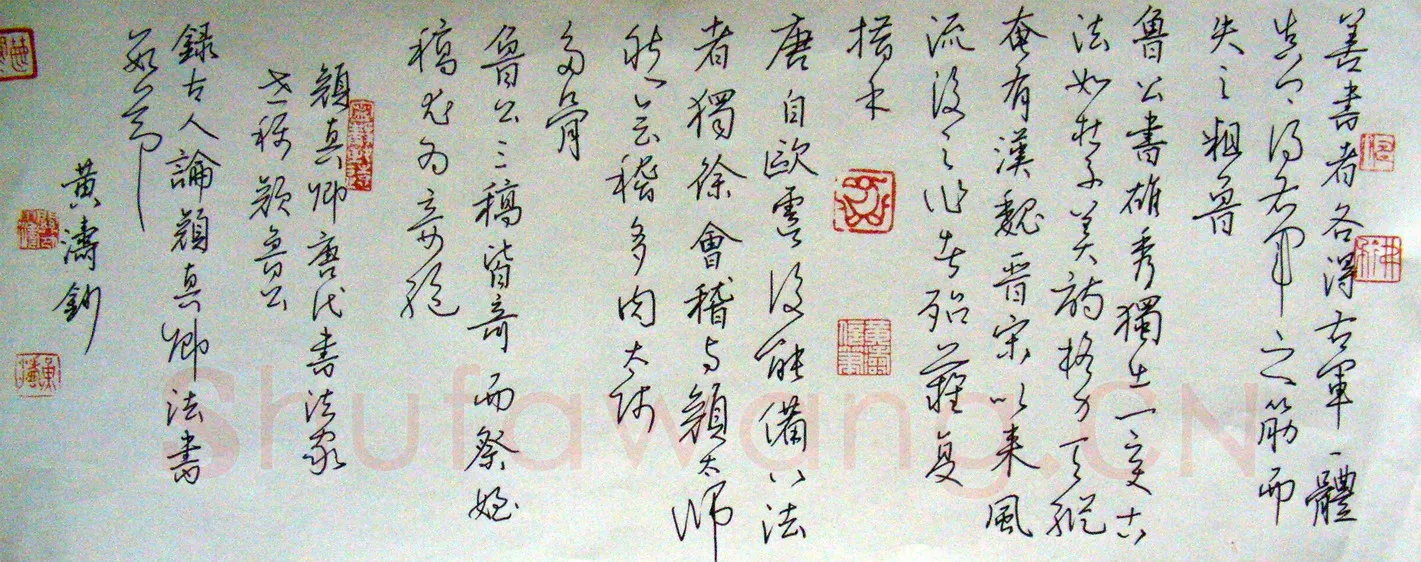 善書者各得右軍一體
真卿得右軍之筋而
失之粗魯
魯公書雄秀獨出一變古
法如杜子美詩格力天縱
奄有漢魏晉宋以來風
流後之作者殆難复
措手
唐自歐虞後能備八法
者獨徐會稽与顏太師
然會稽多肉太師
多骨
魯公三稿皆奇而祭姪
稿尤為奇絕
顏真卿唐代書法家
世稱顏魯公
錄古人論顏真卿法書
黃濤鈔
Shufawang.CN